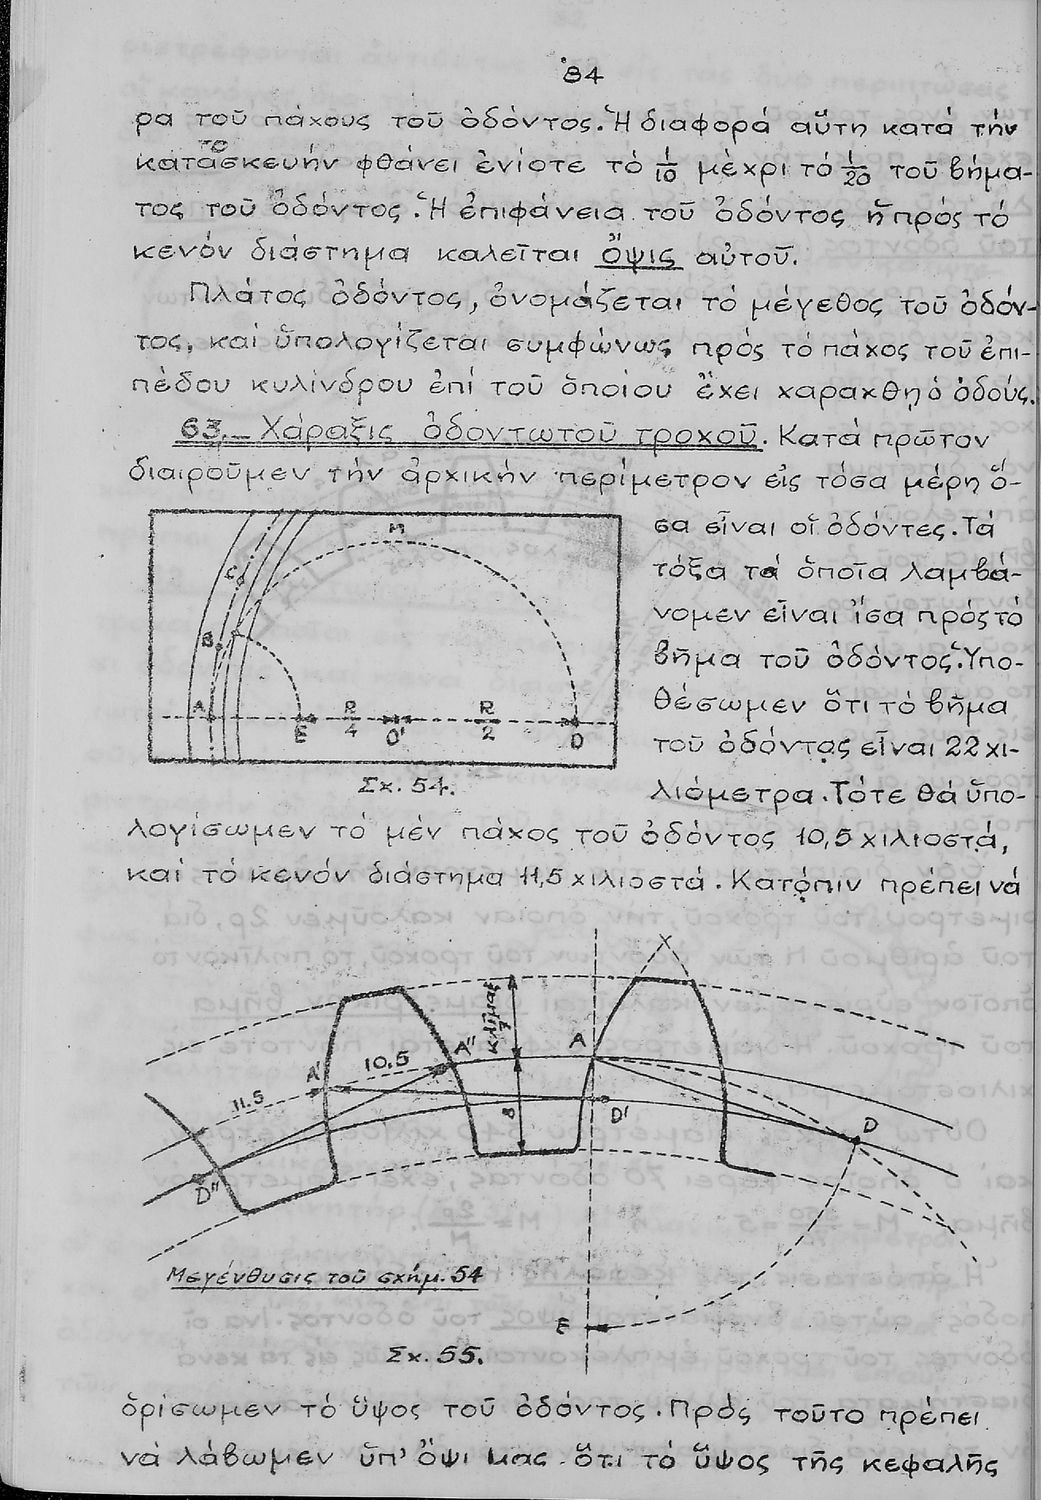 84
ρα τοῦ πάχους τοῦ ὀδόντος. Ἡ διαφορά αὕτη κατά τήν
κατασκευήν φθάνει ἐνίοτε τό 1/10 μέχρι τό 1/20 τοῦ βήμα-
τος τοῦ ὀδόντος. Ἡ ἐπιφάνεια τοῦ ὀδόντος ἡ πρός τό
κενόν διάστημα καλεῖται ὄψις αὐτοῦ.
Πλάτος ὀδόντος, ὀνομάζεται τό μέγεθος τοῦ ὀδόν-
τος, καί ὑπολογίζεται συμφώνως πρός τό πάχος τοῦ ἐπι-
πέδου κυλίνδρου ἐπί τοῦ ὁποίου ἔχει χαραχθῆ ὁ ὀδούς.
63.- Χάραξις ὀδοντωτοῦ τροχοῦ. Κατά πρῶτον
διαιροῦμεν τήν ἀρχικήν περίμετρον εἰς τόσα μέρη ὅ-
σα εἶναι οἱ ὀδόντες. Τά
τόξα τά ὁποῖα λαμβά-
νομεν εἶναι ἴσα πρός τό
βῆμα τοῦ ὀδόντος. Ὑπο-
θέσωμεν ὅτι τό βῆμα
τοῦ ὀδόντος εἶναι 22 χι-
λιόμετρα. Τότε θά ὑπο-
M
C
B
A
E
R/4
O'
R/2
D
Σχ. 54.
λογίσωμεν τό μέν πάχος τοῦ ὀδόντος 10,5 χιλιοστά,
καί τό κενόν διάστημα 11,5 χιλιοστά. Κατόπιν πρέπει νά
A
A''
A'
10.5
11.5
7
8
D'
D
D''
E
Μεγένθυσις τοῦ σχήμ. 54
Σχ. 55.
ὁρίσωμεν τό ὕψος τοῦ ὀδόντος. Πρός τοῦτο πρέπει
νά λάβωμεν ὑπ' ὄψι μας ὅτι τό ὕψος τῆς κεφαλῆς